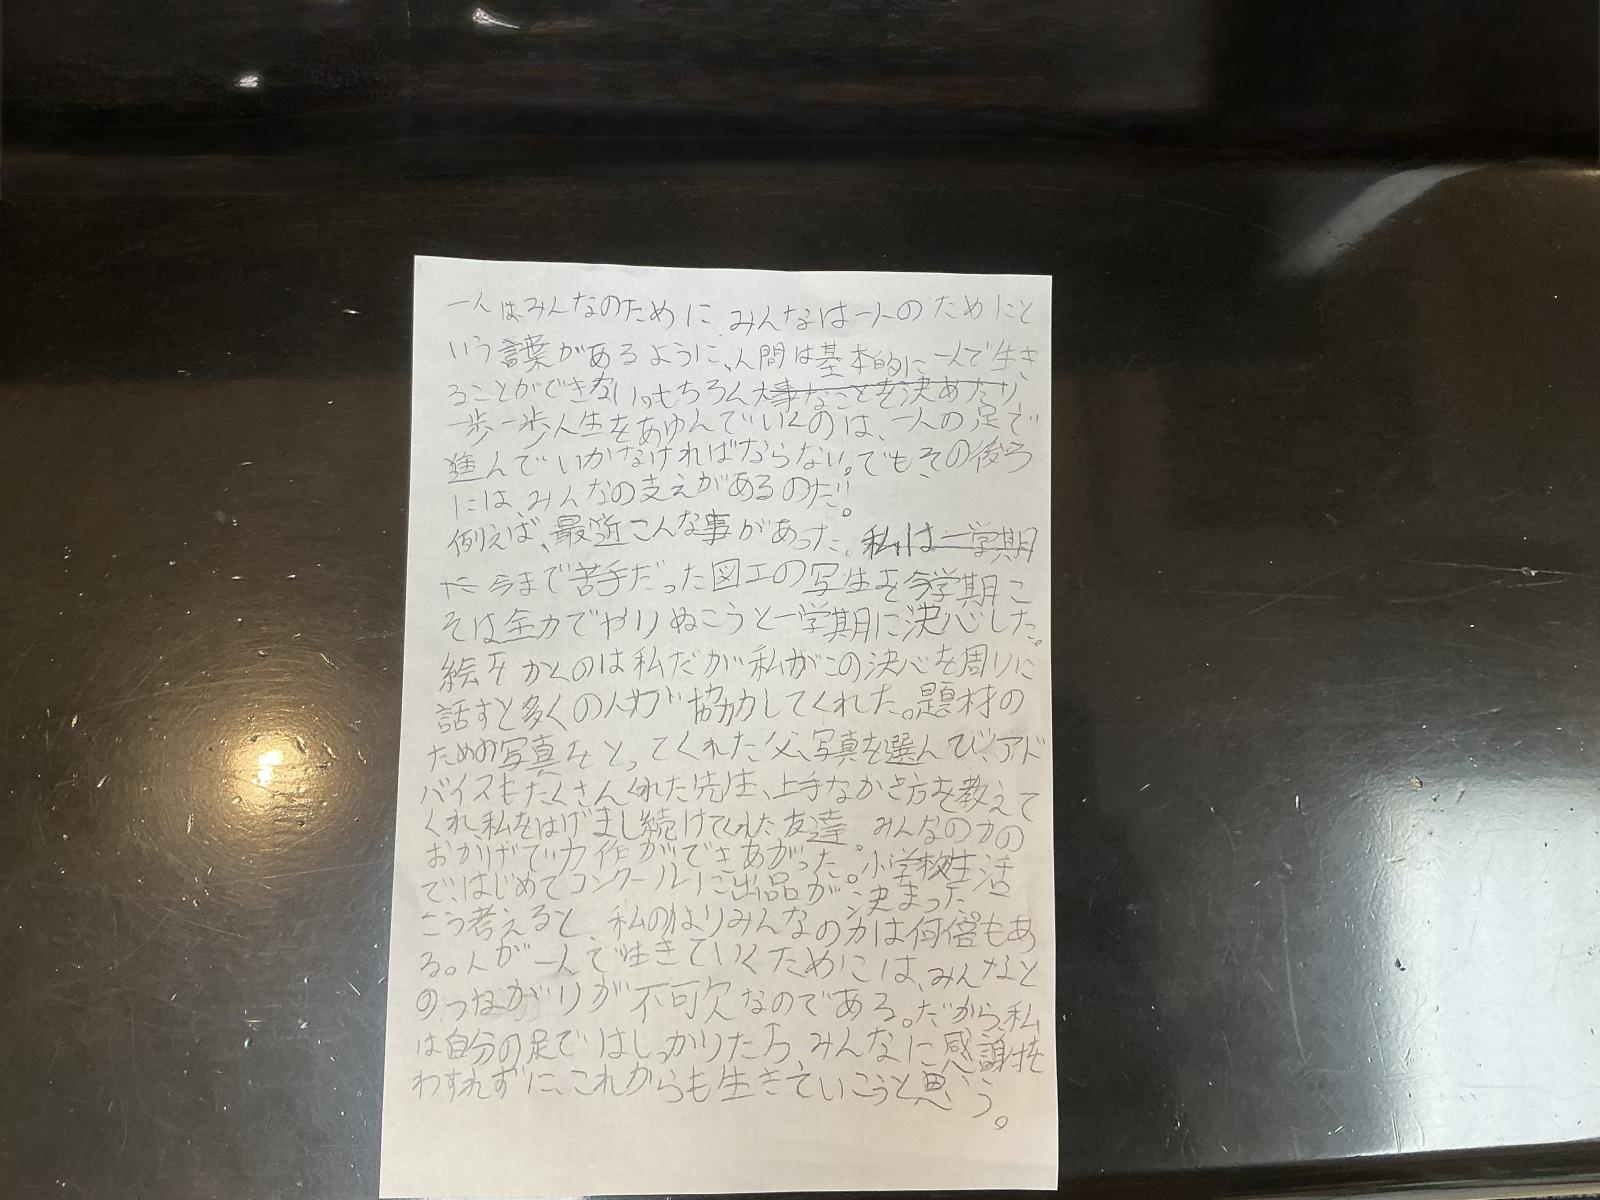 一人はみんなのために みんなは一人のためにと
いう言葉があるように、人間は基本的に一人で生き
ることができない。もちろん大事なことを決めたり
一歩一歩人生をあゆんでいくのは、一人の足で
進んでいかなければならない。でもその後ろ
にはみんなの支えがあるのだ!!。
例えば、最近こんな事があった。私は一学期
だ今まで苦手だった図工の写生を今学期こ
そは全力でやりぬこうと一学期に決心した。
絵をかくのは私だが私がこの決心を周りに
話すと多くの人が協力してくれた。題材の
ための写真をとってくれた父、写真を選んで、アド
バイスもたくさんくれた先生、上手なかき方を教えて
くれ、私をはげまし続けてくれた友達。みんなの力の
おかげで力作ができあがった。小学校生活
で、はじめてコンクールに出品が決まった。
こう考えると、私の力よりみんなの力は何倍もあ
る。人が一人で生きていくためには、みんなと
のつながりが不可欠なのである。だから、私
は自分の足ではしっかりたち、みんなに感謝を
わすれずに、これからも生きていこうと思う。